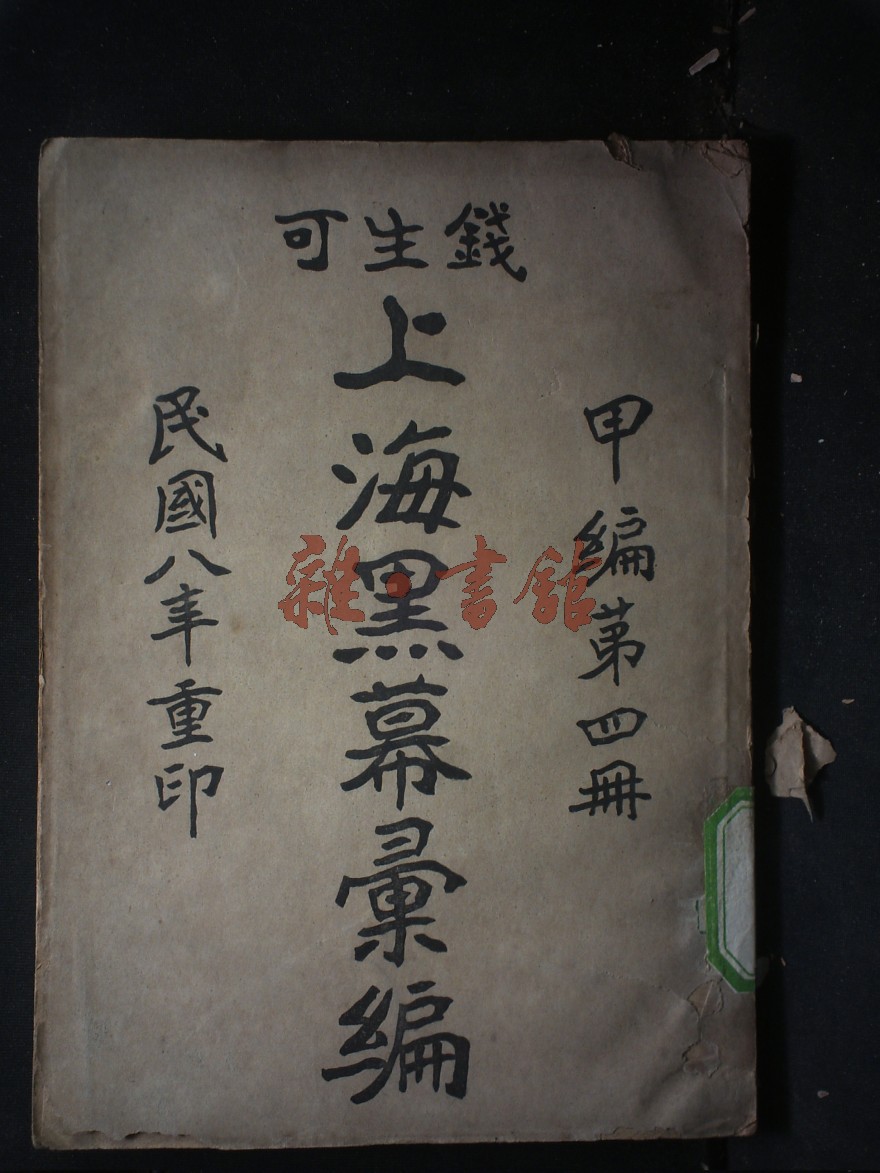 錢生可
甲編第四冊
上海黑幕彙編
民國八年重印
雜·書館